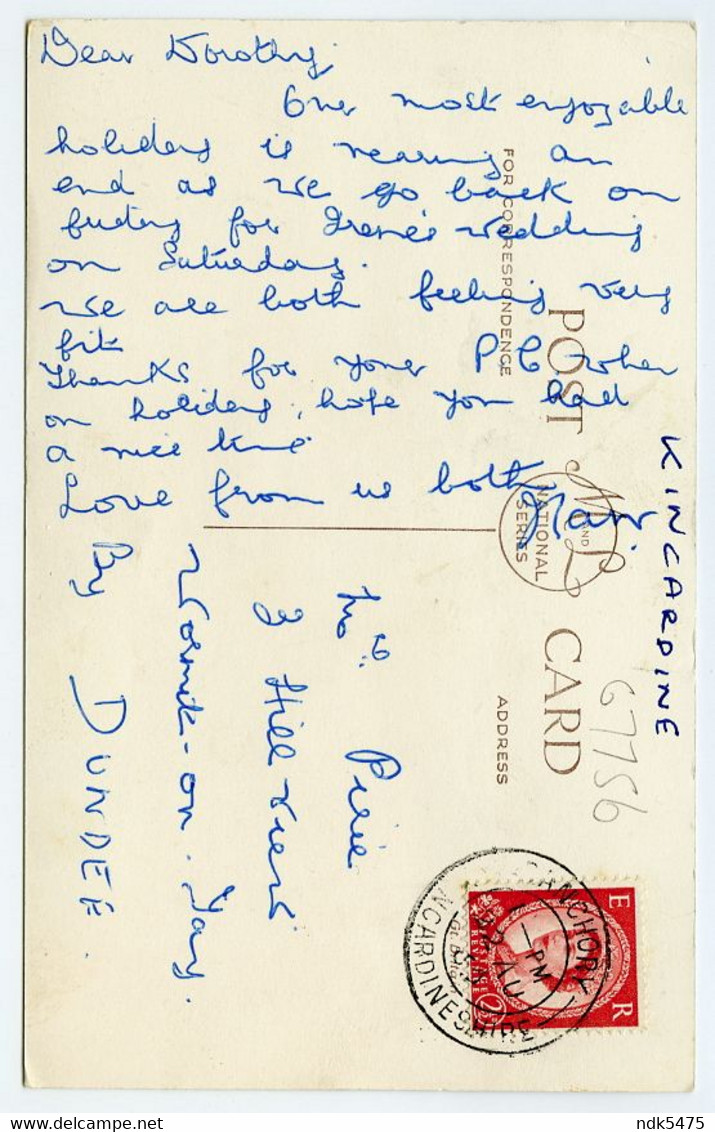 Dear Dorothy,
Our most enjoyable
holiday is nearing an
end as we go back on
friday for Irene's wedding
on Saturday.
We are both feeling very
fit
Thanks for your P.C when
on holiday, hope you had
a nice time
Love from us both
Mrs Pirie
3 Hill View
Wormit-on-Tay.
By DUNDEE.
KINCARDINE
67756
POST CARD
FOR CORRESPONDENCE
ADDRESS
M AND L
NATIONAL
SERIES
BANCHORY
-PM
22 AU
NCARDINESHIRE
E R
REVENUE
ndk5475